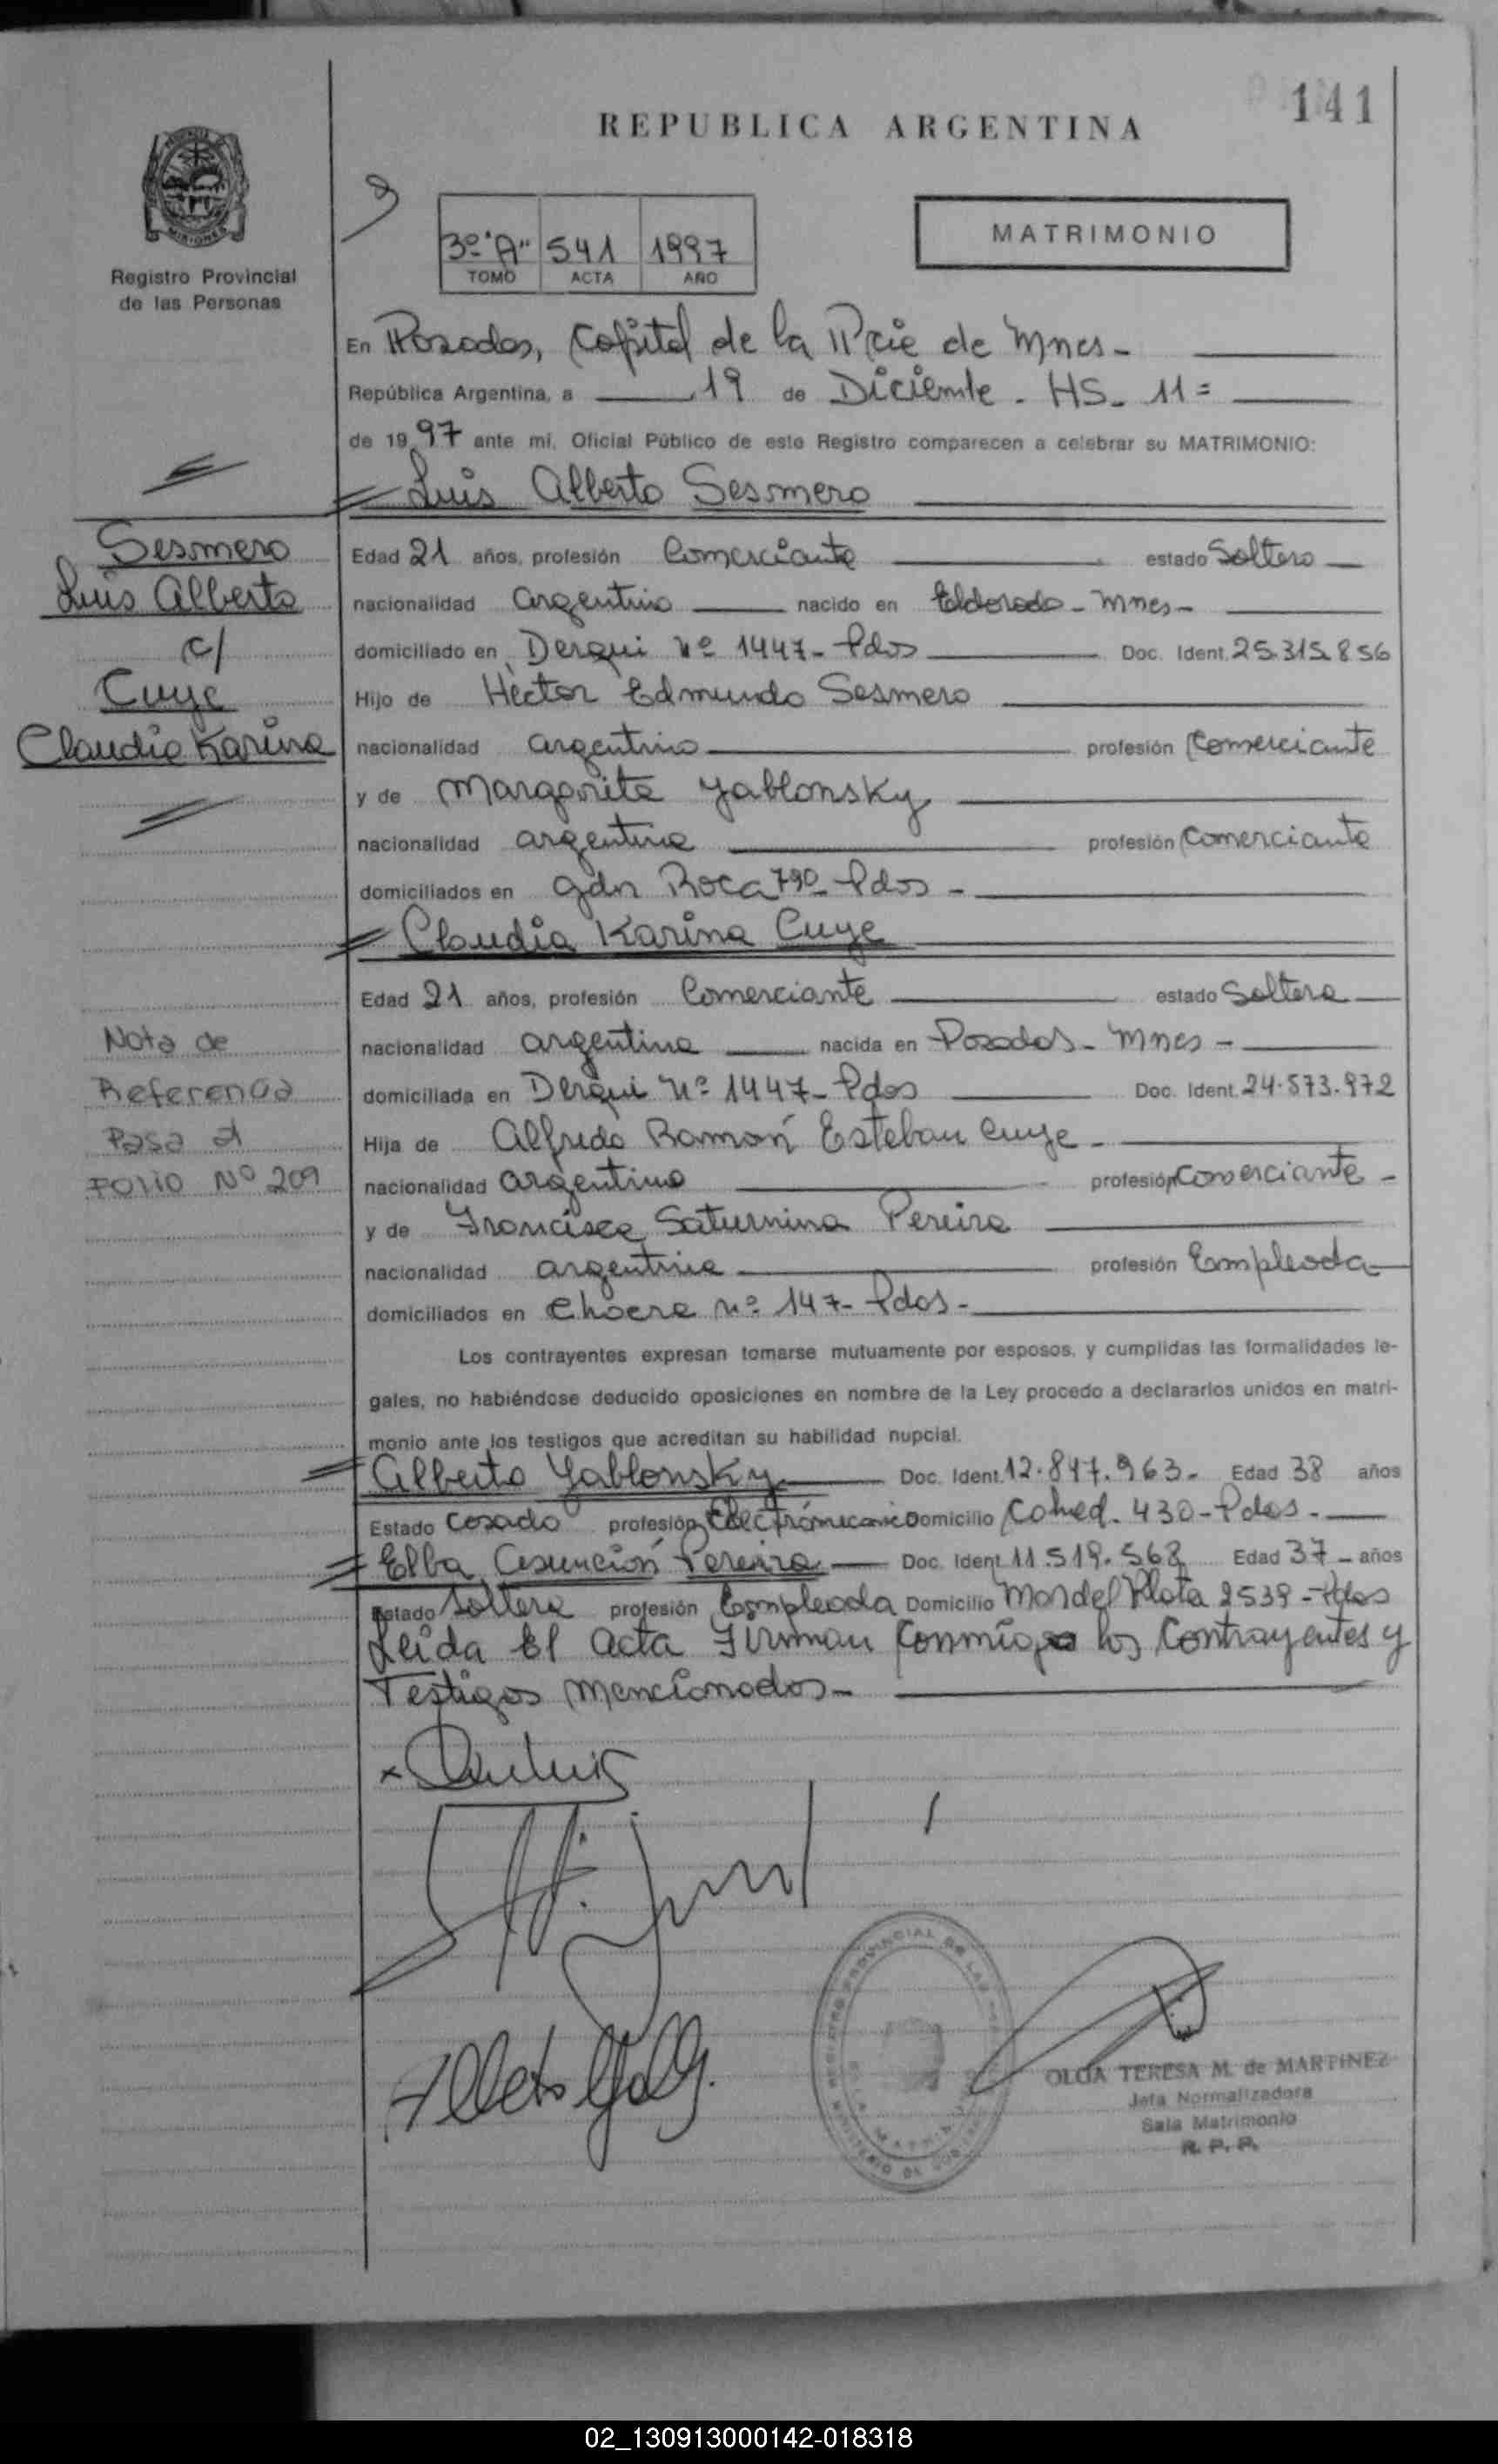 141
REPUBLICA ARGENTINA
MISIONES
Registro Provincial
de las Personas
3º "A" 541 1997
TOMO ACTA AÑO
MATRIMONIO
En Posadas, Capital de la Pcie de Mnes-
República Argentina, a 19 de Diciembre - HS. 11=
de 1997 ante mi, Oficial Público de este Registro comparecen a celebrar su MATRIMONIO:
Luis Alberto Sesmero
Sesmero
Luis Alberto
c/
Cuye
Claudia Karina
Edad 21 años, profesión Comerciante estado Soltero
nacionalidad argentino nacido en Eldorado - Mnes-
domiciliado en Derqui Nº 1447- Pdas Doc. Ident. 25.315.856
Hijo de Héctor Edmundo Sesmero
nacionalidad argentino profesión Comerciante
y de Margarita Yablonsky
nacionalidad argentina profesión Comerciante
domiciliados en Roca 790- Pdas -
Claudia Karina Cuye
Edad 21 años, profesión Comerciante estado Soltera
nacionalidad argentina nacida en Posadas - Mnes -
domiciliada en Derqui Nº 1447- Pdas Doc. Ident. 24.573.972
Hija de Alfredo Ramón Esteban Cuye -
nacionalidad argentino profesión Comerciante -
y de Francisca Saturnina Pereira
nacionalidad argentina profesión Empleada
domiciliados en nº 147- Pdas -
Nota de
Referencia
Pasa al
FOLIO Nº 209
Los contrayentes expresan tomarse mutuamente por esposos, y cumplidas las formalidades le-
gales, no habiéndose deducido oposiciones en nombre de la Ley procedo a declararlos unidos en matri-
monio ante los testigos que acreditan su habilidad nupcial.
Alberto Yablonsky Doc. Ident. 12.847.963- Edad 38 años
Estado Casado profesión Domicilio 430- Pdas -
Elba Asunción Pereira Doc. Ident. 11.519.568 Edad 37 - años
Estado Soltera profesión Empleada Domicilio Mar del Plata 2539 - Pdas
Leida El acta Firman Conmigo los Contrayentes y
Testigos mencionados -
REGISTRO PROVINCIAL DE LAS
OLGA TERESA M. de MARTINEZ
Jefa Normalizadora
Sala Matrimonio
R. P. P.
02_130913000142-018318